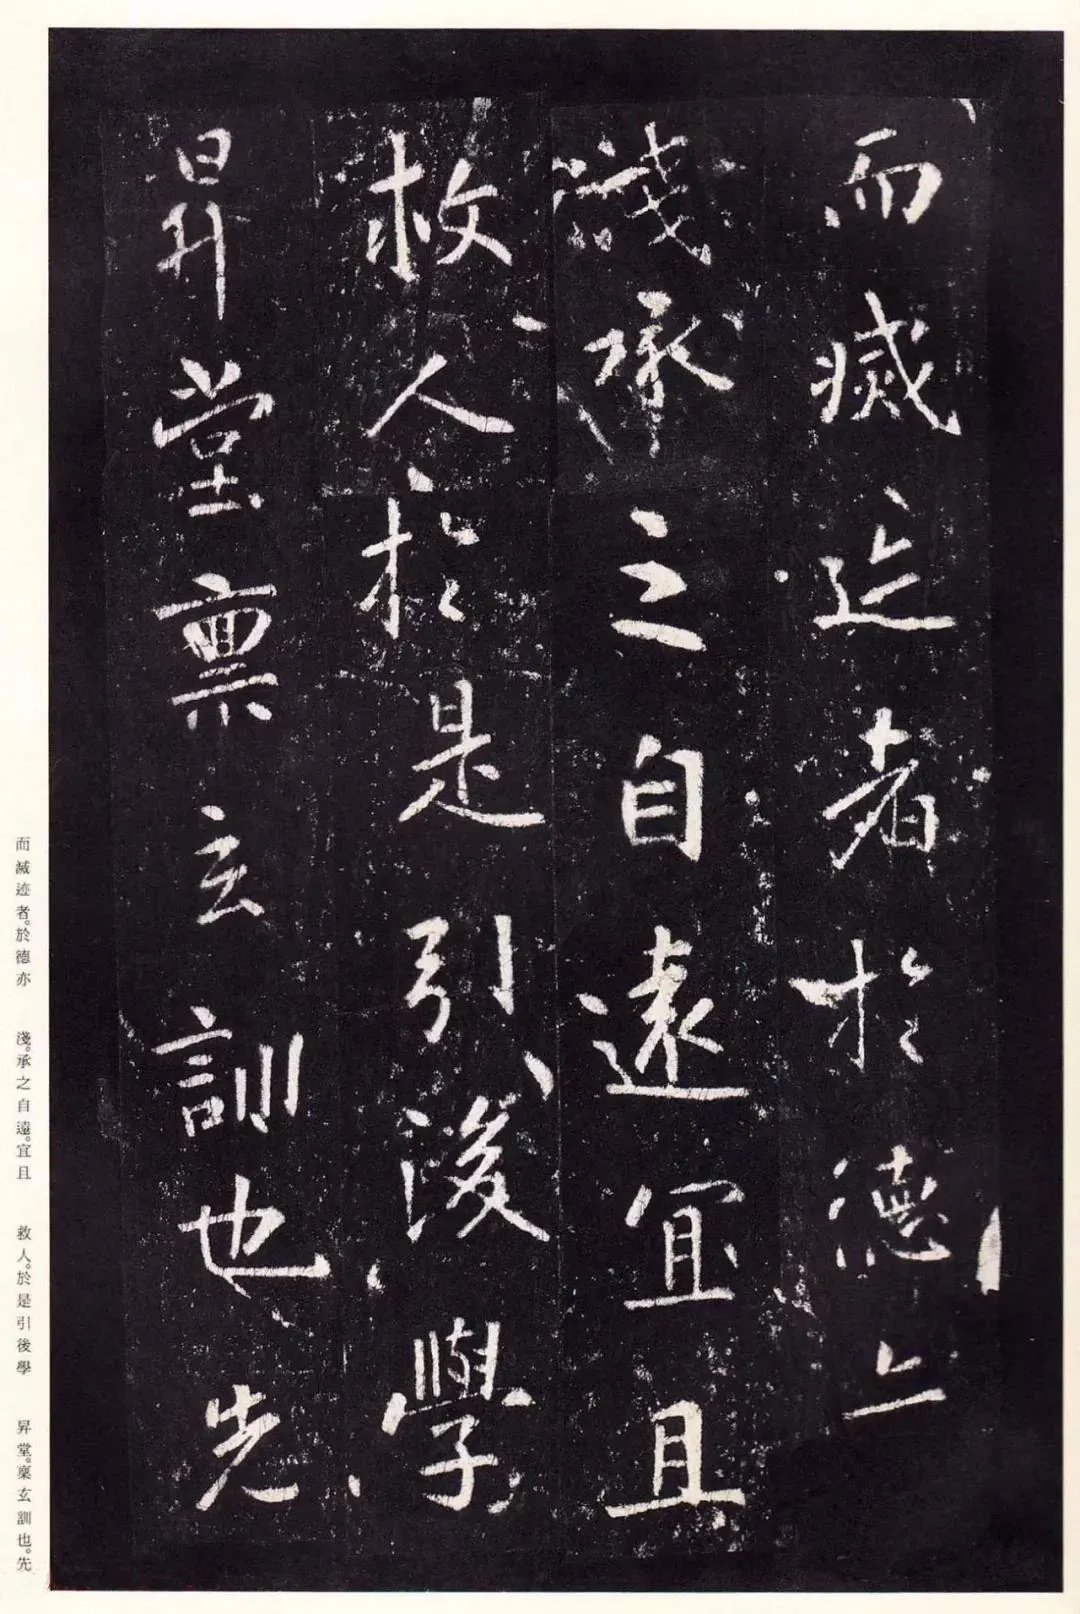 而滅迹者於德亦
淺承之自遠宜且
救人於是引後學
昇堂稟玄訓也先
而滅迹者。於德亦　淺。承之自遠。宜且　救人。於是引後學　昇堂。稟玄訓也。先